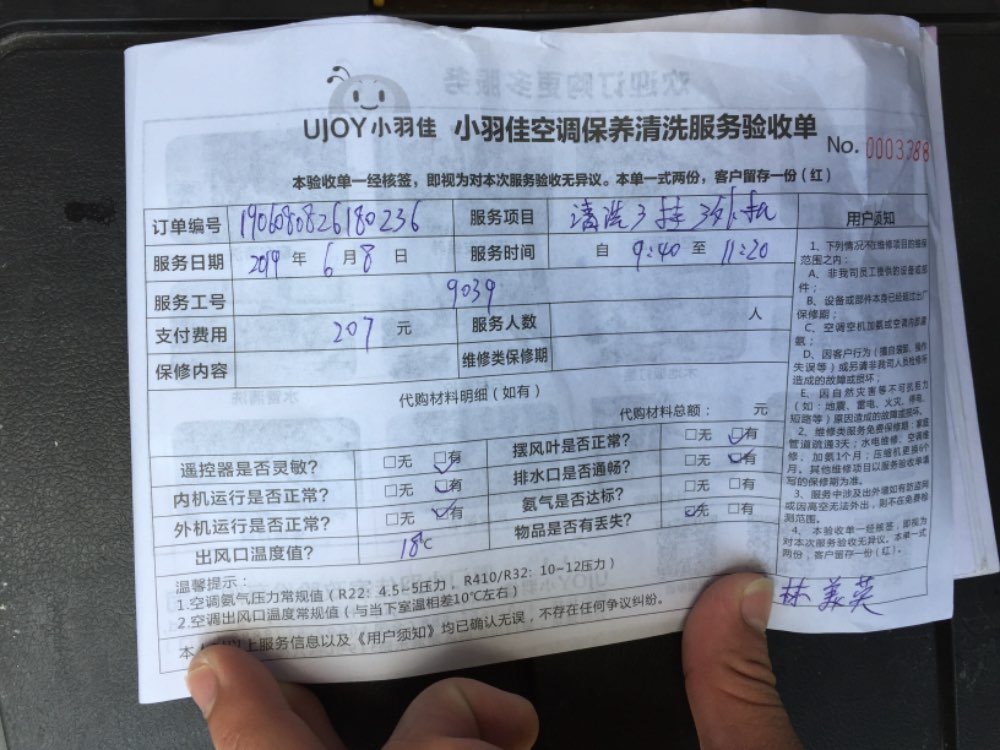 UJOY小羽佳 小羽佳空调保养清洗服务验收单
No. 0003388
本验收单一经核签，即视为对本次服务验收无异议。本单一式两份，客户留存一份（红）
订单编号 190608026180236 服务项目 清洗3挂3外机
服务日期 2019 年 6 月 8 日 服务时间 自 9:40 至 11:20
服务工号 9039
支付费用 207 元 服务人数 人
保修内容 维修类保修期
代购材料明细（如有）
代购材料总额： 元
遥控器是否灵敏？ □无 □有 摆风叶是否正常？ □无 □有
内机运行是否正常？ □无 □有 排水口是否通畅？ □无 □有
外机运行是否正常？ □无 □有 氨气是否达标？ □无 □有
出风口温度值？ 18℃ 物品是否有丢失？ □无 □有
温馨提示：
1.空调氨气压力常规值（R22：4.5~5压力，R410/R32：10~12压力）
2.空调出风口温度常规值（与当下室温相差10℃左右）
以上服务信息以及《用户须知》均已确认无误，不存在任何争议纠纷。
用户须知
1、下列情况不在维修项目的维保
范围之内：
A、非我司员工提供的设备或部
件；
B、设备或部件本身已经超过出厂
保修期；
C、空调空机加氨或空调内部漏
氨；
D、因客户行为（擅自改卸、操作
失误等）或另请非我司人员检修所
造成的故障或损坏；
E、因自然灾害等不可抗拒力
（如：地震、雷电、火灾、停电、
短路等）原因造成的故障或损坏。
2、维修类服务免费保修期：家庭
管道疏通3天；水电维修、空调维
修、加氨1个月；压缩机更换6个
月。其他维修项目以服务验收单填
写的保修期为准。
3、服务中涉及出外墙如有防盗网
或因高空无法外出，则不在免费检
测范围。
4、本验收单一经核签，即视为
对本次服务验收无异议。本单一式
两份，客户留存一份（红）。
林美英